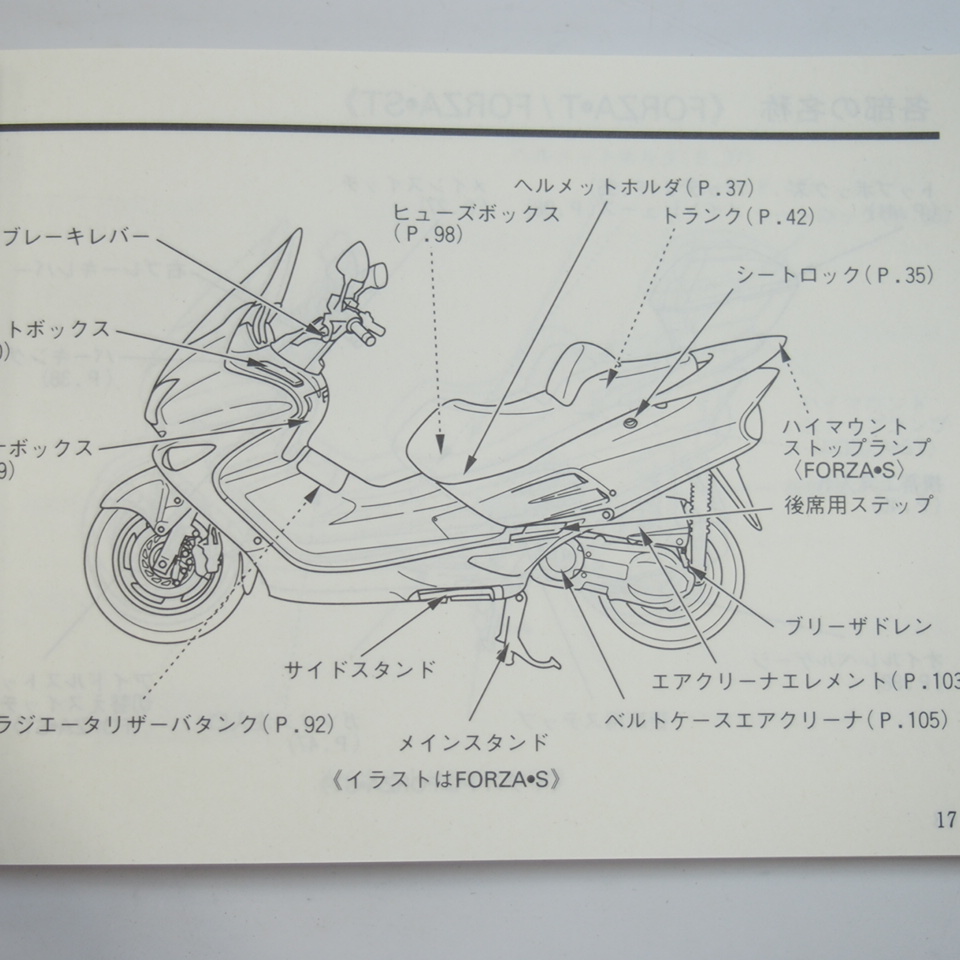 ヘルメットホルダ(P.37)
ヒューズボックス
(P.98)
トランク(P.42)
ブレーキレバー
シートロック(P.35)
トボックス
ボックス
ハイマウント
ストップランプ
〈FORZA•S〉
後席用ステップ
ブリーザドレン
サイドスタンド
エアクリーナエレメント(P.103
ラジエータリザーバタンク(P.92)
ベルトケースエアクリーナ(P.105)
メインスタンド
《イラストはFORZA•S》
17